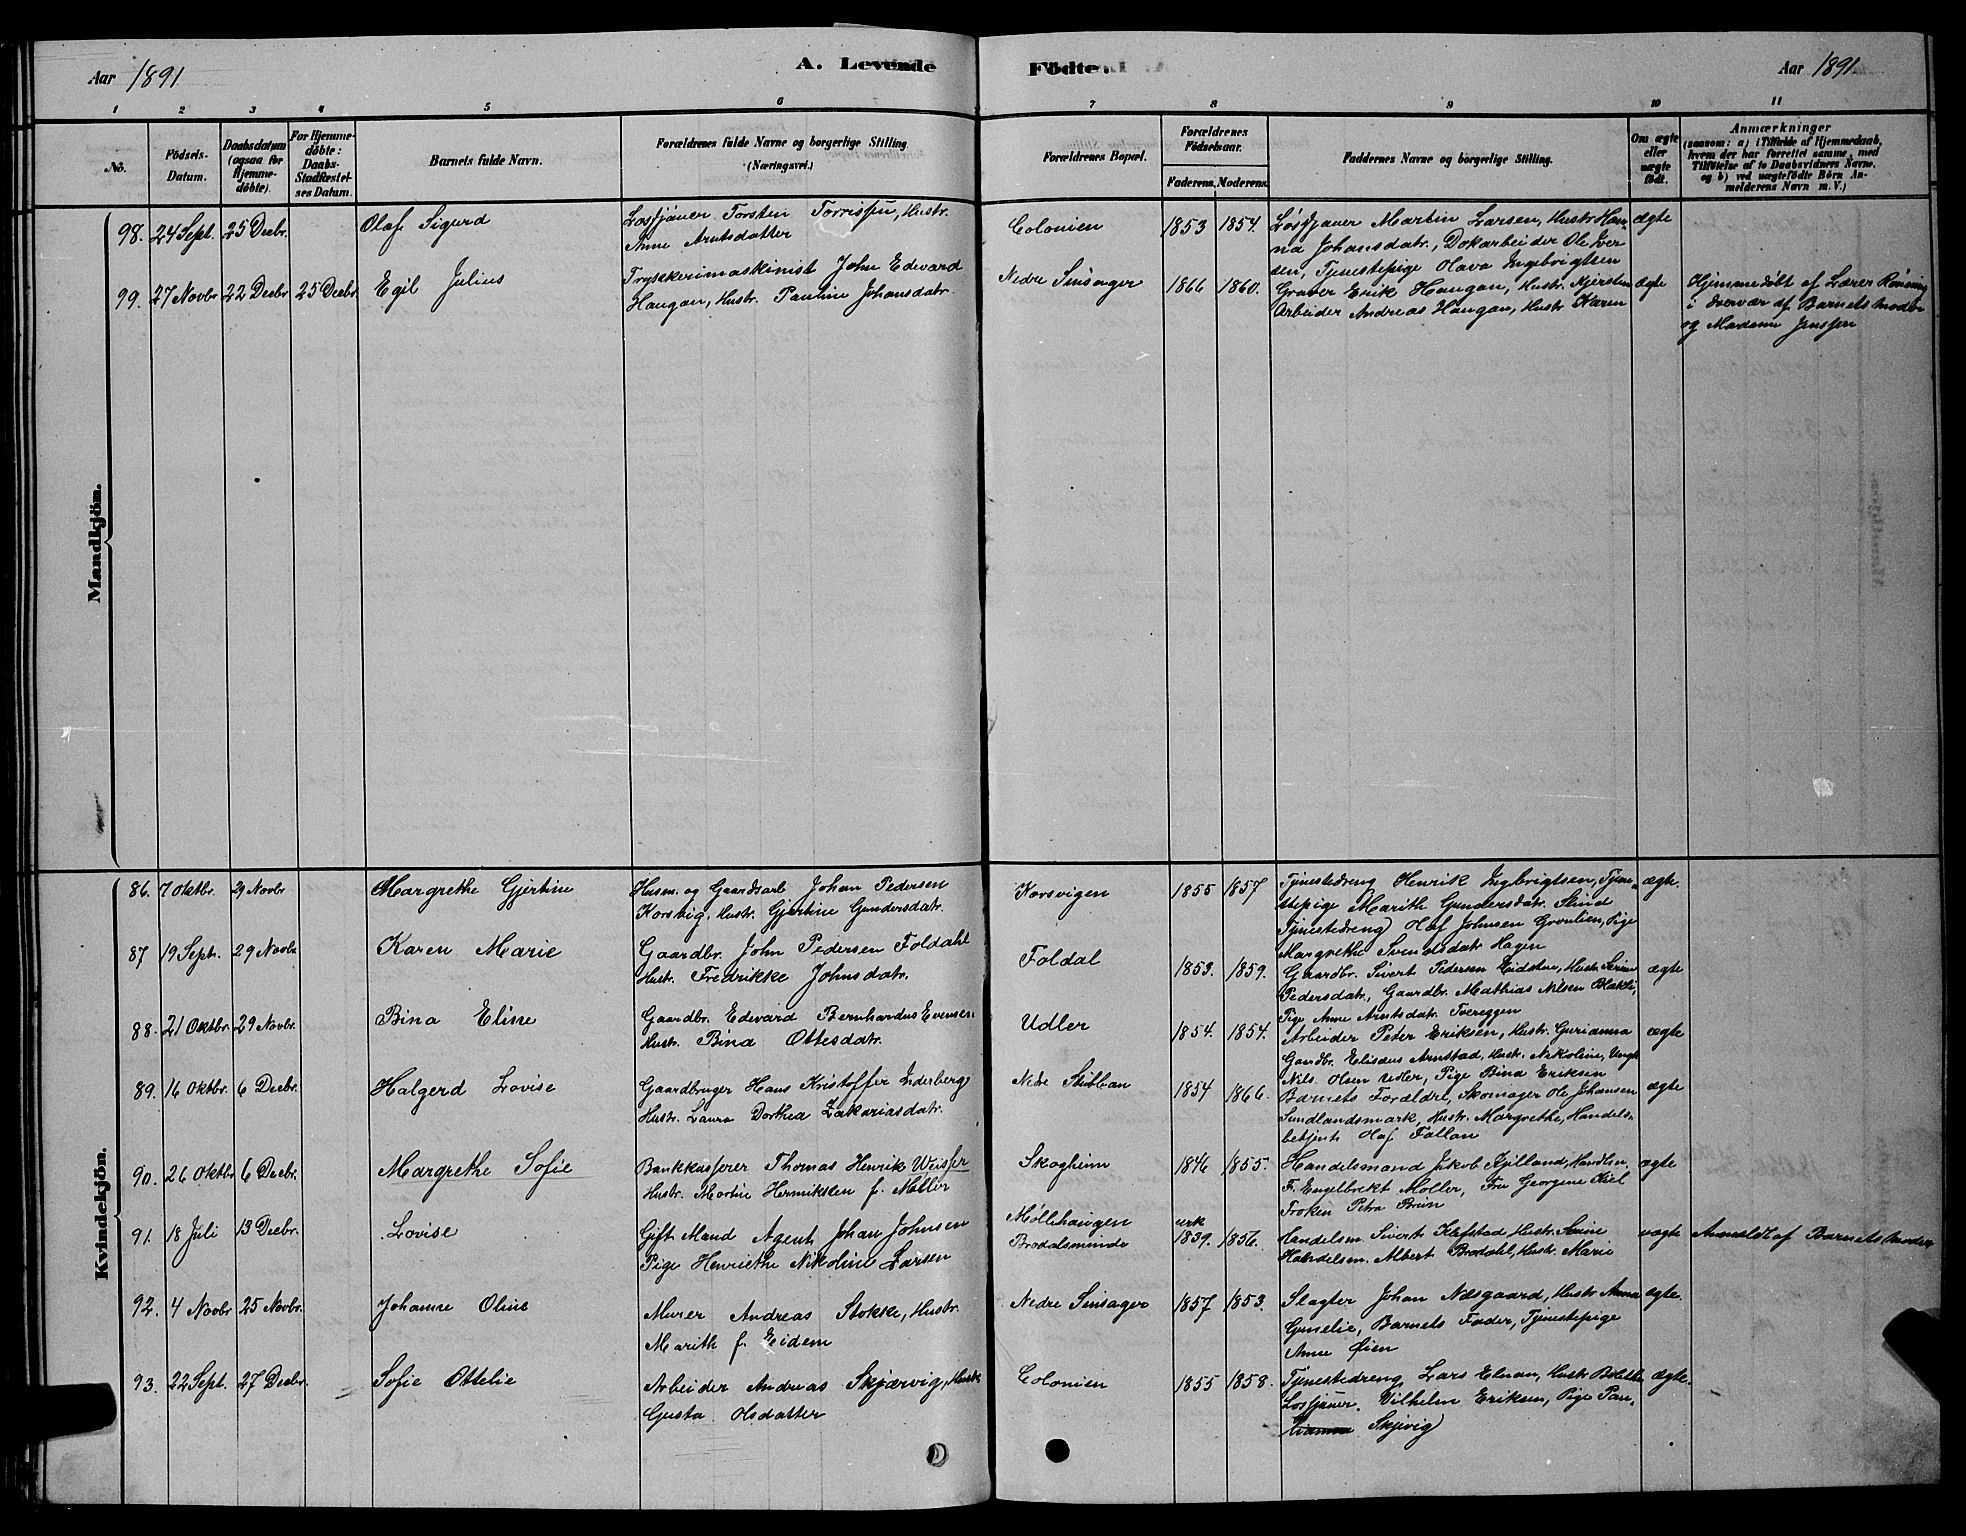 Aar 1891
A. Levende
1 2 3 4 5 6
No.
Födsels-Datum.
Daabsdatum (ogsaa for Hjemme-döbte).
For Hjemme-döbte: Daabs-Stadfæstel-ses Datum.
Barnets fulde Navn.
Forældrenes fulde Navne og borgerlige Stilling. (Næringsvei.)
Mandkjön.
98. 24 Sept. 25 Decbr. Olaf Sigurd Losfjáuer Torsten Torrissen, Hustr.
Anne Arntsdatter
99. 27 Novbr 22 Decbr 25 Decbr Egil Julius Trykkerimaskinist John Edevard
Haugan, Hustr. Pauline Johansdatr.
Kvindekjön.
86. 7 Oktbr. 29 Novbr Margrethe Gjertine Husm. og Gaardsarb Johan Pedersen
Korsvig, Hustr. Gjertine Gundersdatr.
87 19 Sept. 29 Novbr Karen Marie Gaardbr. John Pedersen Foldahl
Hustr. Fredrikke Johnsdatr.
88. 21 Oktbr. 29 Novbr. Bina Eline Gaardbr. Edevard Bernhardus Evensen
Hustr. Bina Ottesdatr.
89. 16 Oktbr. 6 Decbr. Halgerd Lovise Gaardbruger Hans Kristoffer Inderberg
Hustr. Laura Dorthea Zakariasdatr.
90. 26 Oktbr 6 Decbr. Margrethe Sofie Bankkasserer Thomas Henrik Weisser
Hustr. Martine Henriksen f. Møller
91. 18 Juli 13 Decbr. Lovise Gift Mand Agent Johan Johnsen
Pige Henriette Nikoline Larsen
92. 4 Novbr 25 Novbr. Johanne Oline Murer Andreas Stokke, Hustr.
Marith f. Eidem
93. 22 Sept. 27 Decbr. Sofie Ottelie Arbeider Andreas Skjærvig, Hustr
Gusta Olsdatter
Födte.
Aar 1891
7 8 9 10 11
Forældrenes Bopæl.
Forældrenes Födselsaar.
Faderens. Moderens.
Faddernes Navne og borgerlige Stilling.
Om ægte eller uægte födt.
Anmærkninger
(saasom: a) i Tilfælde af Hjemmedaab, hvem der har forrettet samme, med Tilföielse af to Daabsvidners Navne, og b) ved uægtefödte Börn An-melderens Navn m. V.)
Colonien 1853 1854. Løsfjáuer Martin Larsen, Hustr Han- ægte
na Johansdatr., Dokarbeider Ole Iver
sen, Tjenestepige Olava Ingebrigtsen
Nedre Sinsager 1866 1860. Graver Erik Haugan, Hustr. Kjersten ægte Hjemmedøbt af Lærer Rønning
Arbeider Andreas Haugan, Hustr Karen i Overvær af Barnets Moder
og Madame Jenssen
Korsvigen 1855 1857 Tjenestedreng Henrik Ingbrigtsen, Tjen- ægte.
stepige Marith Gundersdatr. Stind
Tjenestedreng Olaf Johnsen Grønlien, Pige
Margrethe Svendsdatr Hagen
Foldal 1853. 1859. Gaardbr. Sivert Pedersen Eidsten, Hustr Serine ægte
Pedersdatr, Gaardbr. Mathias Nilsen Blakli,
Pige Anne Arntsdatr. Tvereggen
Udler 1854. 1854. Arbeider Peter Eriksen, Hustr. Gurianna ægte
Gaardbr. Elisæus Arnstad, Hustr. Nikoline, Ungk
Nils Olsen Udler, Pige Bina Eriksen
Nedre Stubban 1854 1866. Barnets Forældre, Skomager Ole Johansen ægte
Sundlandsmark, Hustr. Margrethe, Handels-
betjent Olaf Fallan
Skogheim 1846 1855. Handelsmand Jakob Kjelland, Handlsm. ægte
F. Engelbrekt Møller, Fru Georgine Kiel
Frøken Petra Bruun
Møllehaugen cirk
Brodalsminde 1839. 1856. Handelsm. Sivert Klefstad, Hustr. Serine uægte Anmeldt af Barnets Moder
Handelsm. Albert Brodahl, Hustr. Marie
Nedre Sinsager 1857 1853. Slagter Johan Næsgaard, Hustr Anna ægte.
Gunelie, Barnets Fader, Tjenestepige
Anne Øien
Colonien 1855 1858. Tjenestedreng Lars Elnan, Hustr Bolette ægte.
Losfjáuer. Vilhelm Eriksen, Pige Pau-
Skjervig